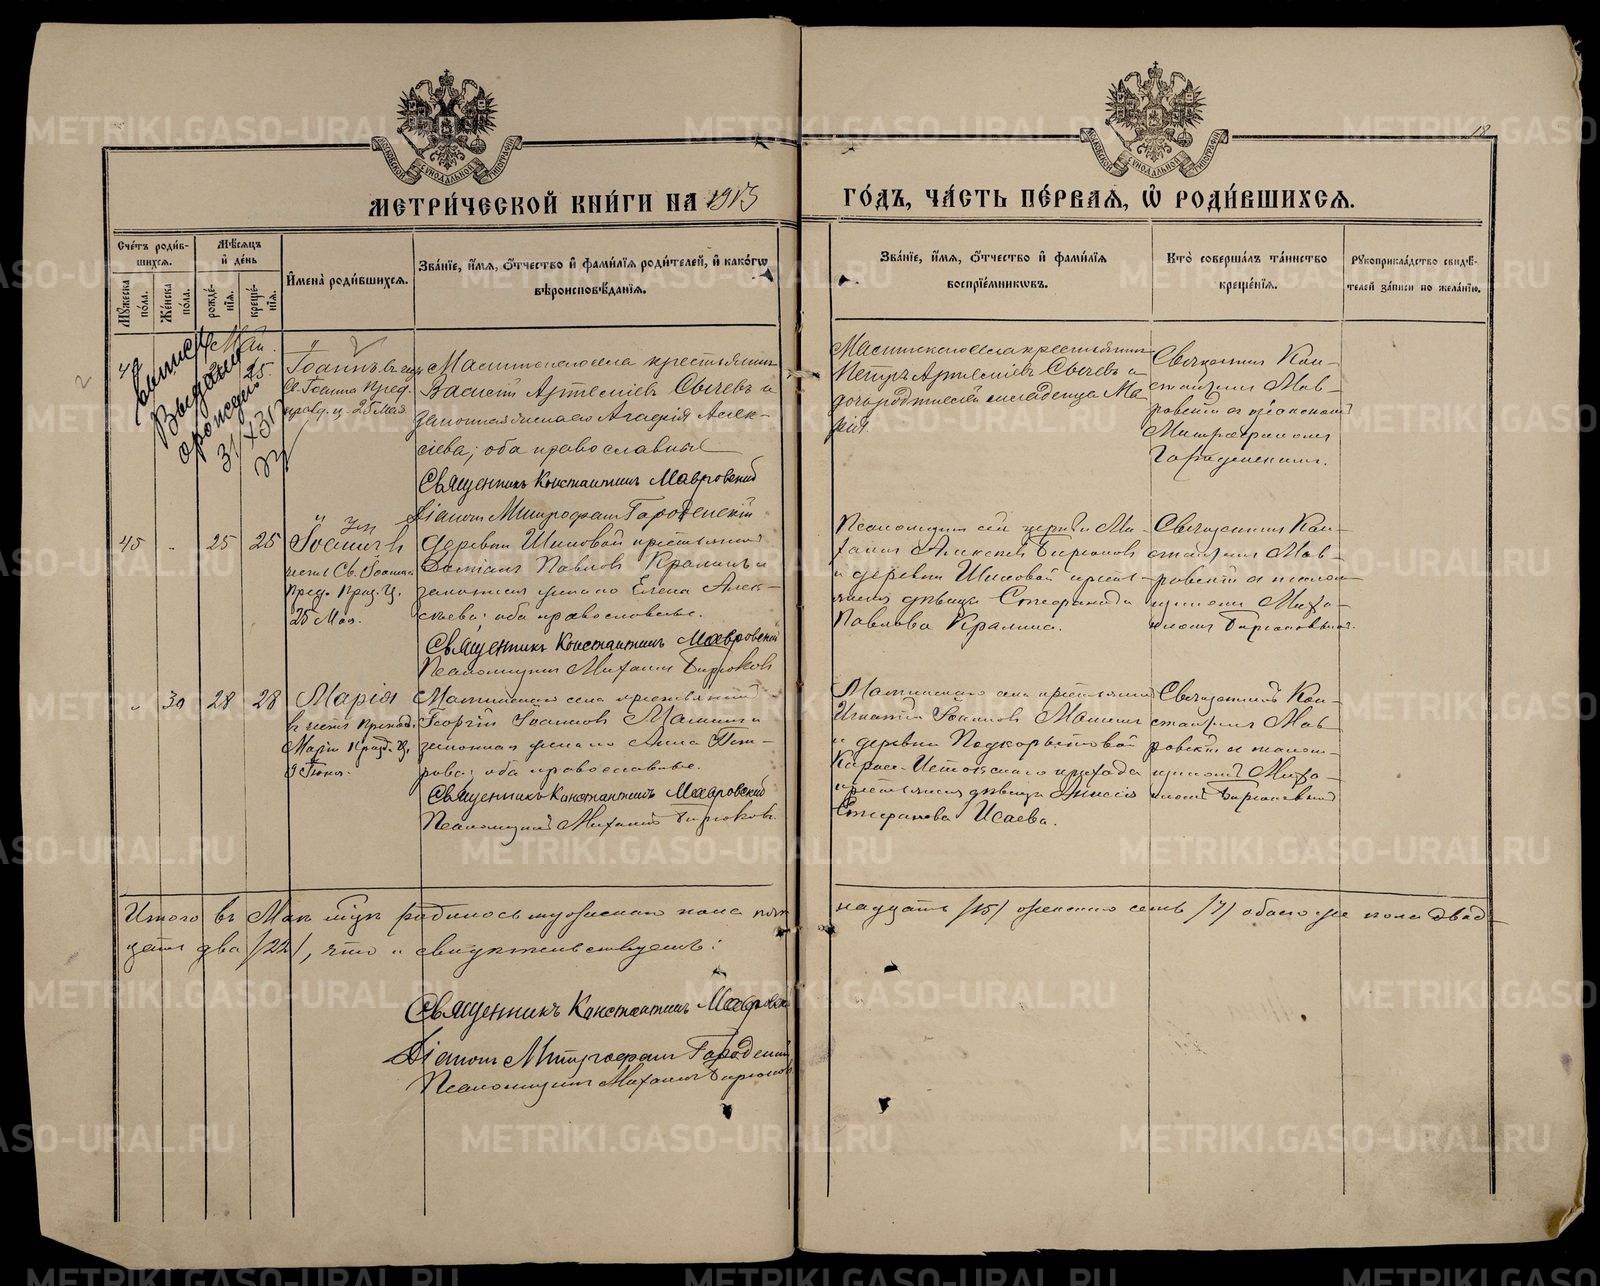 МЕТРИ́ЧЕСКОЙ КНИ́ГИ НА 1913 ГО́ДЪ, ЧА́СТЬ ПЕ́РВАЯ, Ѽ РОДИ́ВШИХСЯ.
18
Сче́тъ роди́вшихся.
Мꙋ́жеска по́ла.
Же́нска по́ла.
Мѣ́сяцъ и҆ де́нь
рожде́нїя.
креще́нїя.
И҆мена̀ роди́вшихся.
Зва́нїе, и҆́мя, ѻ҆́тчество и҆ фами́лїя роди́телей, и҆ како́гѡ
вѣроисповѣ́данїя.
Зва́нїе, и҆́мя, ѻ҆́тчество и҆ фами́лїя
воспрїе́мникѡвъ.
Кто̀ соверша́лъ та́инство
креще́нїя.
Рꙋкоприкла́дство свидѣ́-
телей за́писи по жела́нїю.
Май
25
Іоаннъ
Св. Іоанна Пред.
25 Мая
села крестьянинъ
Василій Артеміевъ Сычевъ и
законная жена его Агафія Алек-
сіева; оба православные
Священникъ Константинъ Мавровский
Діаконъ Митрофанъ Городенскій
села крестьянинъ
Петръ Артеміевъ Сычевъ и
дочь родителей младенца Ма-
рія.
Священникъ Кон-
стантинъ Мав-
ровскій съ діакономъ
Митрофаномъ
Городенскимъ.
45 " 25 25 Іоаннъ
въ честь Св. Іоанна
Пред. Праз. ц.
25 Мая.
деревни Шиловой крестьянинъ
Даміанъ Павловъ Кралинъ и
законная жена его Елена Алек-
сѣева; оба православные.
Священникъ Константинъ Мавровский
Псаломщикъ Михаилъ Бирюковъ
Псаломщикъ сей церкви Ми-
хаилъ Алексѣевъ Бирюковъ
и деревни Шиловой крест-
янская дѣвица Стефанида
Павлова Кралина.
Священникъ Кон-
стантинъ Мав-
ровскій съ псалом-
щикомъ Миха-
иломъ Бирюковымъ.
" 30 28 28 Марія
въ честь Препод.
Маріи Празд. ц.
9 Іюня.
села крестьянинъ
Георгій Іоанновъ и
законная жена его Анна Пет-
рова; оба православные.
Священникъ Константинъ Мавровский
Псаломщикъ Михаилъ Бирюковъ.
села крестьянинъ
Игнатій Іоанновъ
и деревни Подкорытовой
Карасе-Истокскаго прихода
крестьянская дѣвица Анисія
Стефанова Исаева.
Священникъ Кон-
стантинъ Мав-
ровскій съ псалом-
щикомъ Миха-
иломъ Бирюковымъ
Итого въ Маѣ мѣс. родилось мужескаго пола пят-
надцать /15/ женскаго семь /7/ обоего же пола двад-
цать два /22/, что и свидѣтельствуемъ:
Священникъ Константинъ Мавровскій
Діаконъ Митрофанъ Городенскій
Псаломщикъ Михаилъ Бирюковъ
METRIKI.GASO-URAL.RU